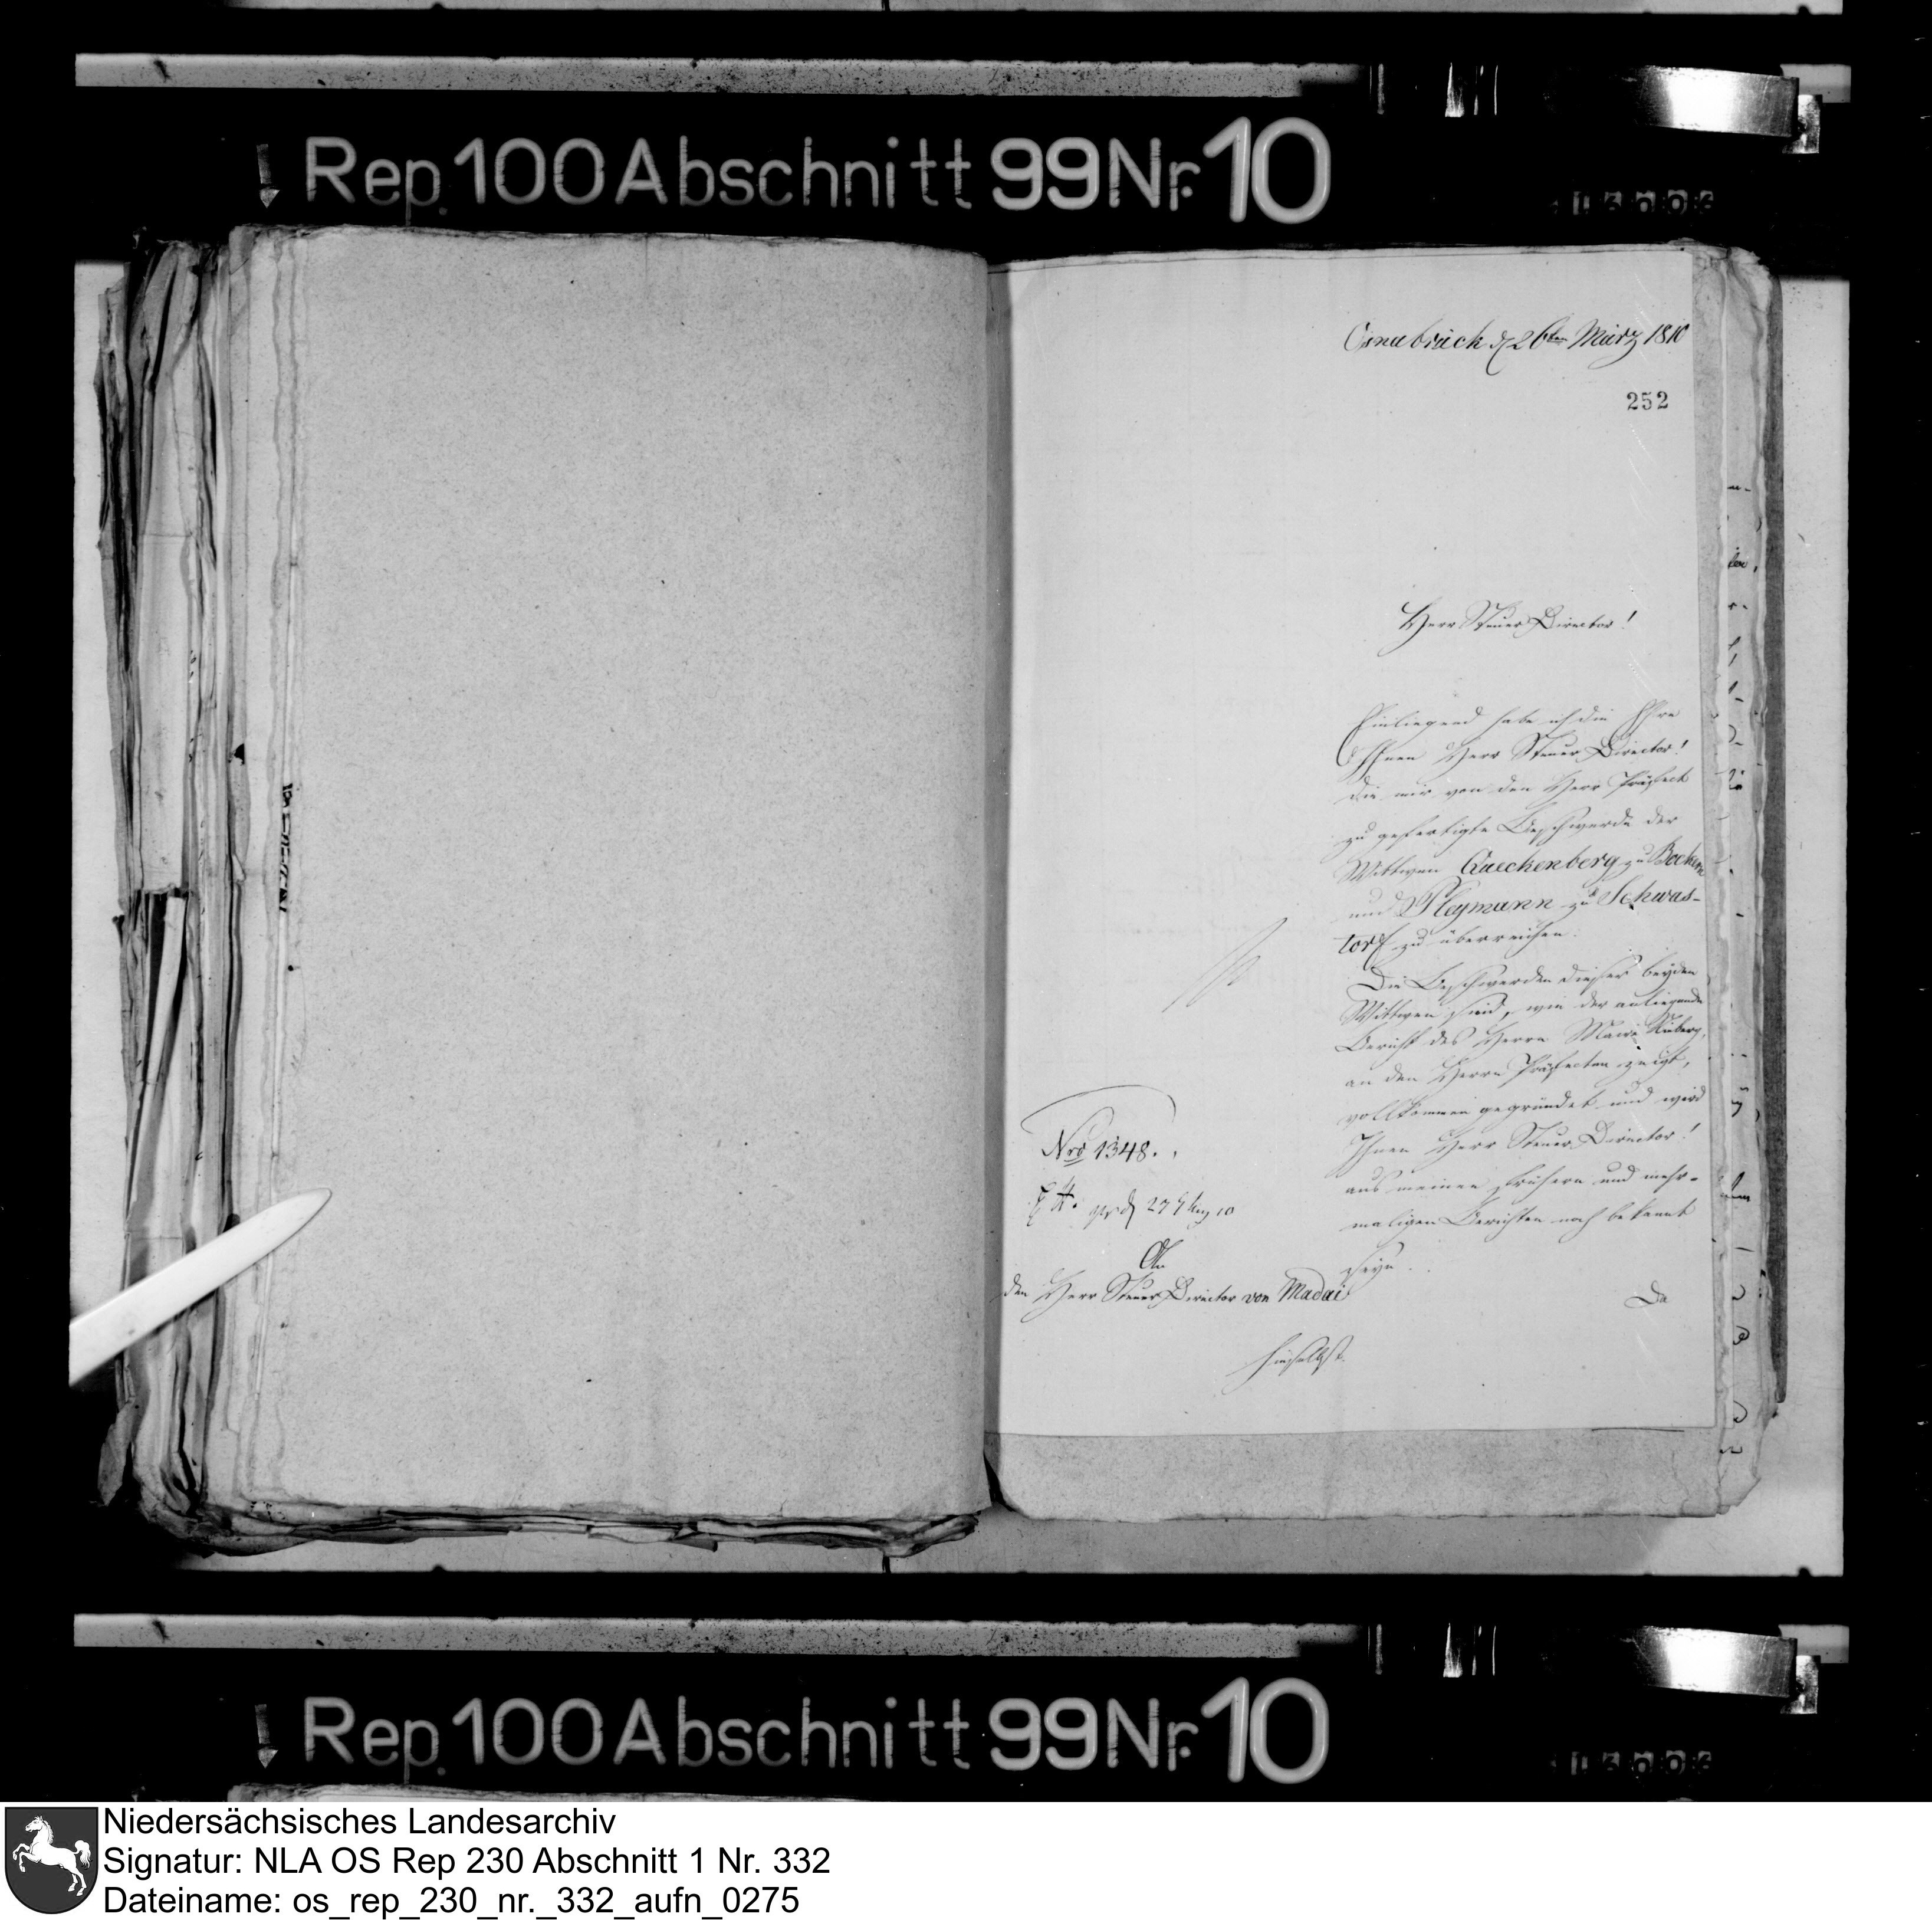 Rep. 100 Abschnitt 99 Nr. 10
Osnabrück d 26ten März 1810
252
Herr Steuer Director!
Einliegend habe ich die Ehre
Ihnen Herr Steuer Director!
die mir von den Herr Präfect
zu gefertigte Beschwerde der
Wittwen Queckenberg zu
und Pleymann zu Schwas-
torf zu überreichen.
Die Beschwerden dieser beyden
Wittwen sind, wie der anliegende
Bericht des Herrn Maire
an den Herrn Präfecten zeigt,
vollkommen gegründet und wird
Ihnen Herr Steuer Director!
aus meinen frühern und mehr-
maligen Berichten noch bekannt
seyn.
Da
Nro 1348.
An
den Herr Steuer Director von Madai
hieselbst.
Rep. 100 Abschnitt 99 Nr. 10
Niedersächsisches Landesarchiv
Signatur: NLA OS Rep 230 Abschnitt 1 Nr. 332
Dateiname: os_rep_230_nr._332_aufn_0275